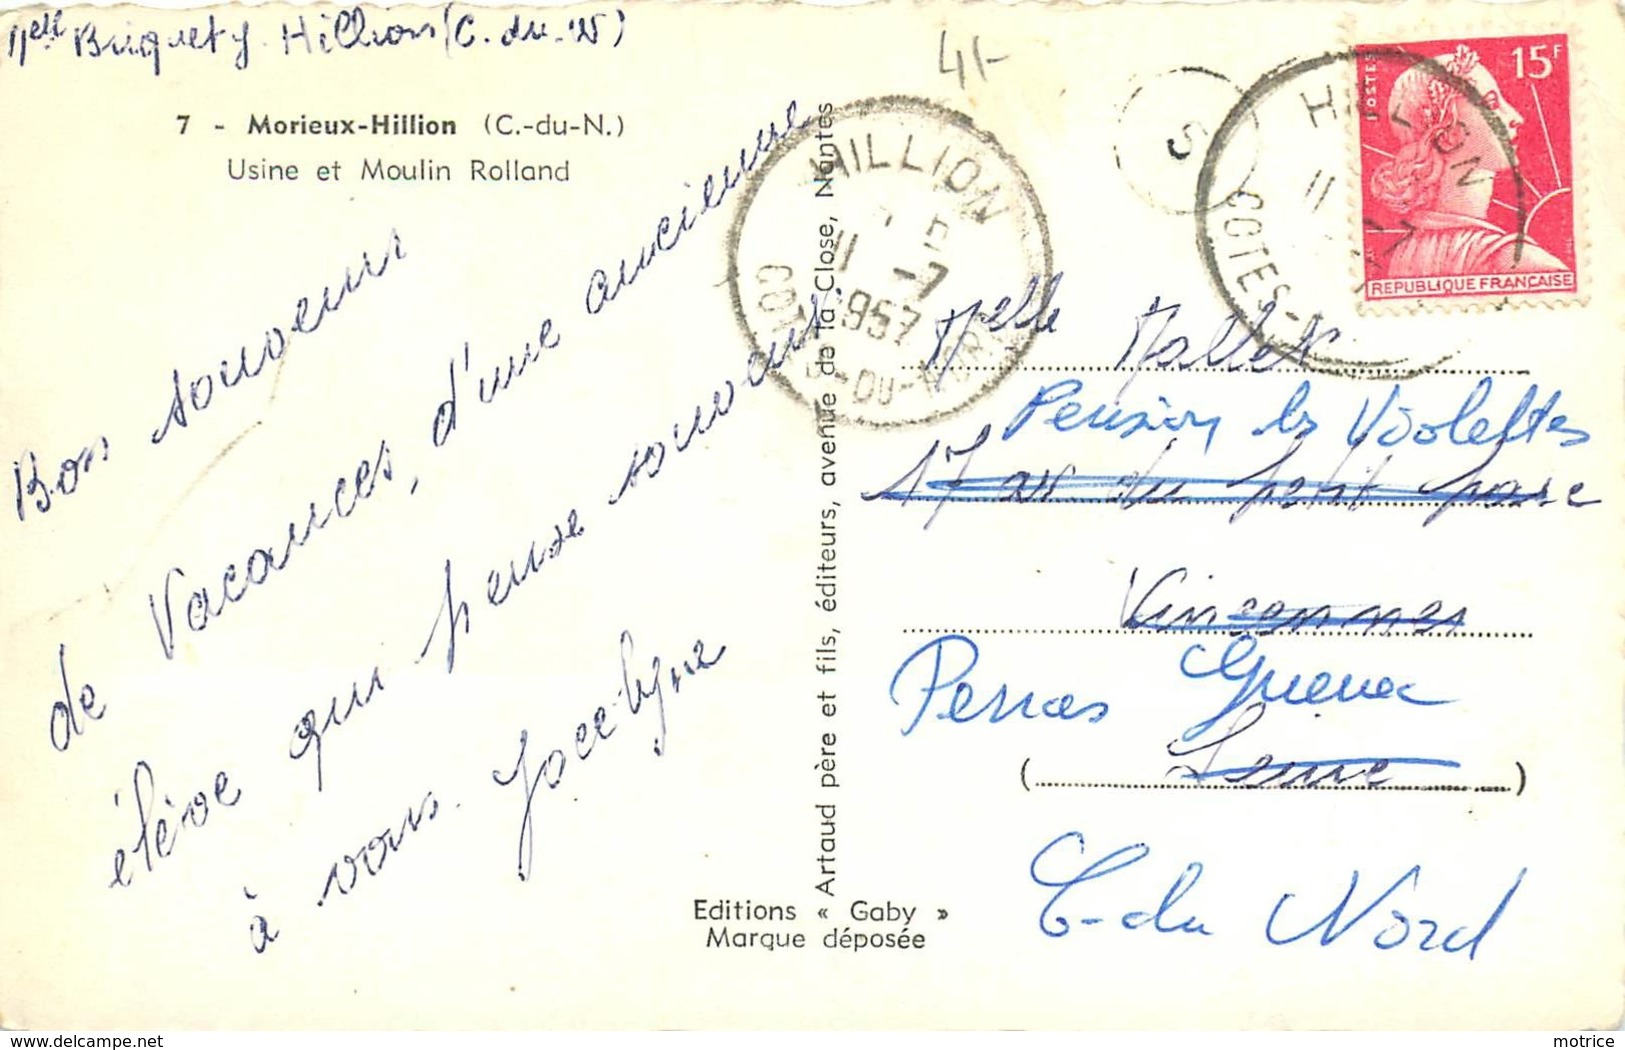 Melle Briquet J. Hillion (C. du N)
7 - Morieux-Hillion (C.-du-N.)
Usine et Moulin Rolland
Bon souvenir
de Vacances, d'une ancienne
élève qui pense souvent
à vous. Jocelyne
Editions « Gaby »
Marque déposée
Artaud père et fils, éditeurs, avenue de la Close, Nantes
41-
HILLION
11 -7
1957
COTES-DU-NORD
5
HILLION
11 -7
COTES-
POSTES
15F
REPUBLIQUE FRANÇAISE
Melle Mallet
Pension les Violettes
17 av. du petit parc
Vincennes
Perros Guirec
Seine
C-du Nord
motrice